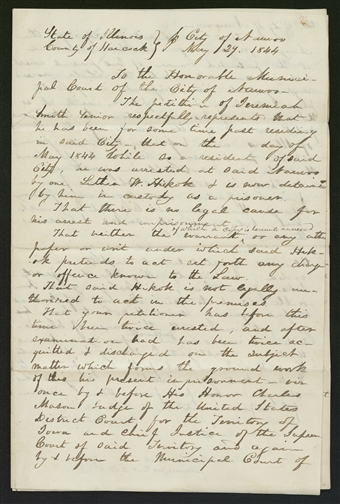 State of Illinois } ss City of Nauvoo
County of Hancock } May 29. 1844
To the Honorable Munici-
pal Court of the City of Nauvoo.
The petition of Jeremiah
Smith Senior respectfully represents that
he has been for some time past residing
in said City. that on the day of
May 1844 while as a resident of said
City, he was arrested at said Nauvoo
by one W. Hickok & is now detained
by him in custody as a prisoner
That there is no legal cause for
his arrest and imprisonment
(of which a copy is hereunto annexed)
That neither the warrant, or any other
paper or writ under which said Hick-
ok pretends to act set forth any charge
or offence known to the Law.
That said Hickok is not legally au-
thorized to act in the premises
That your petitioner has before this
time been twice arrested, and after
examination had has been twice ac-
quitted & discharged on the subject
matter which forms the ground work
of this his present imprisonment – viz
once by & before His Honor Charles
Mason Judge of the United States
District Court for the Territory of
Iowa and Chief Justice of the Supreme
Court of said Territory and again
by & before the Municipal Court of